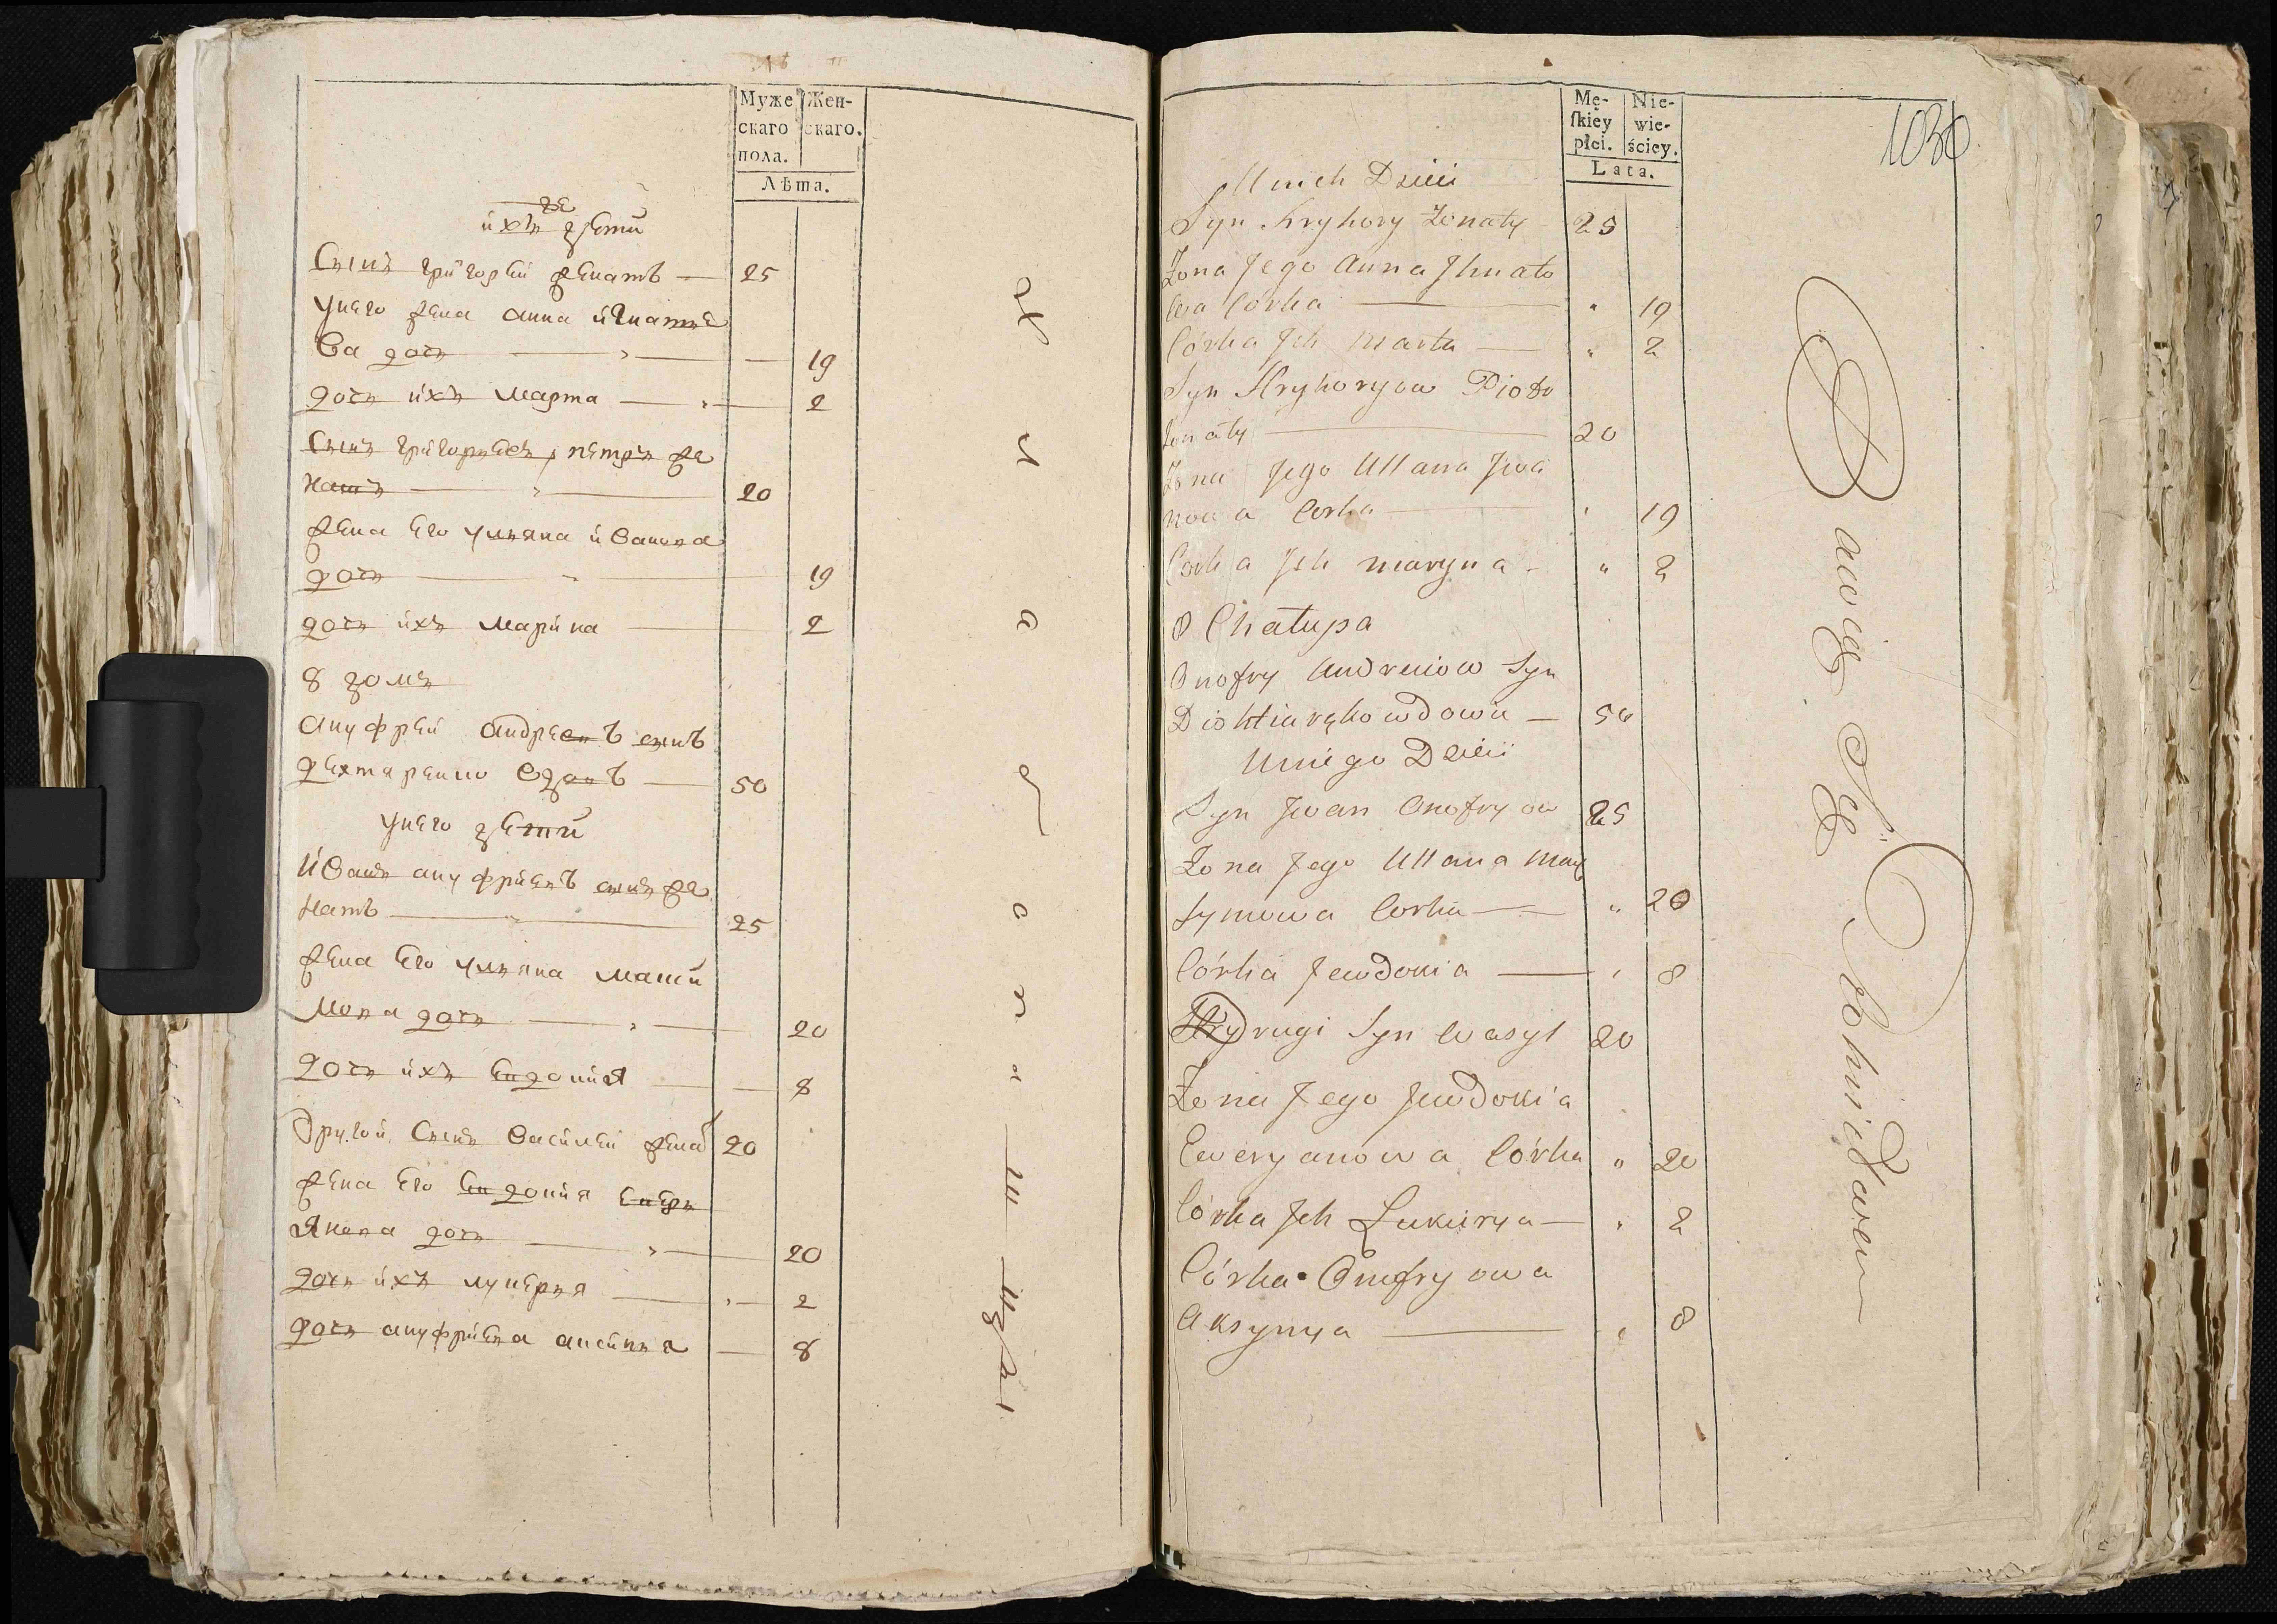 Муже
скаго
пола.
Жен-
скаго.
Лѣта.
ихъ дети
Сынъ григорей женатъ — 25
Унего жена анна игнатье
ва дочь — 19
дочь ихъ марта — 2
Сынъ григорьевъ петръ же
натъ — 20
жена Его ульяна иванова
дочь — 19
дочь ихъ марина — 2
8 домъ
ануфрей андреевъ сынъ
дехтяренко вдовъ — 50
унего дети
иванъ ануфриевъ сынъ же
натъ — 25
жена Его ульяна макси
мова дочь — 20
дочь ихъ Евдокия — 8
другой Сынъ василей жена 20
жена Его Евдокия Еверь
янова дочь — 20
дочь ихъ лукерья — 2
дочь ануфриева аксинья — 8
Mę-
ſkiey
płci.
Nie-
wie-
ściey.
Lata.
1030.
U nich Dzieci
Syn Hryhory Zonaty 25
Zona Jego Anna Jhnato
wa Córka — " 19
Córka Jch Marta — " 2
Syn Hryhoryow Piotr
Zonaty — 20
Zona Jego Ullana Jwa
nowa Corka — " 19
Corka Jch maryna - " 2
8 Chałupa
Onofry Andreiow Syn
Diohtiaręko wdowiec — 50
Uniego Dzieci
Syn Jwan Onofryow 25
Zona Jego Ullana Max
symowa Corka — " 20
Córka Jewdokia — " 8
drugi Syn Wasyl 20
Zona Jego Jewdokia
Eweryanowa Córka " 20
Córka Jch Lukierya — " 2
Córka Onofryowa
Aksynya — " 8